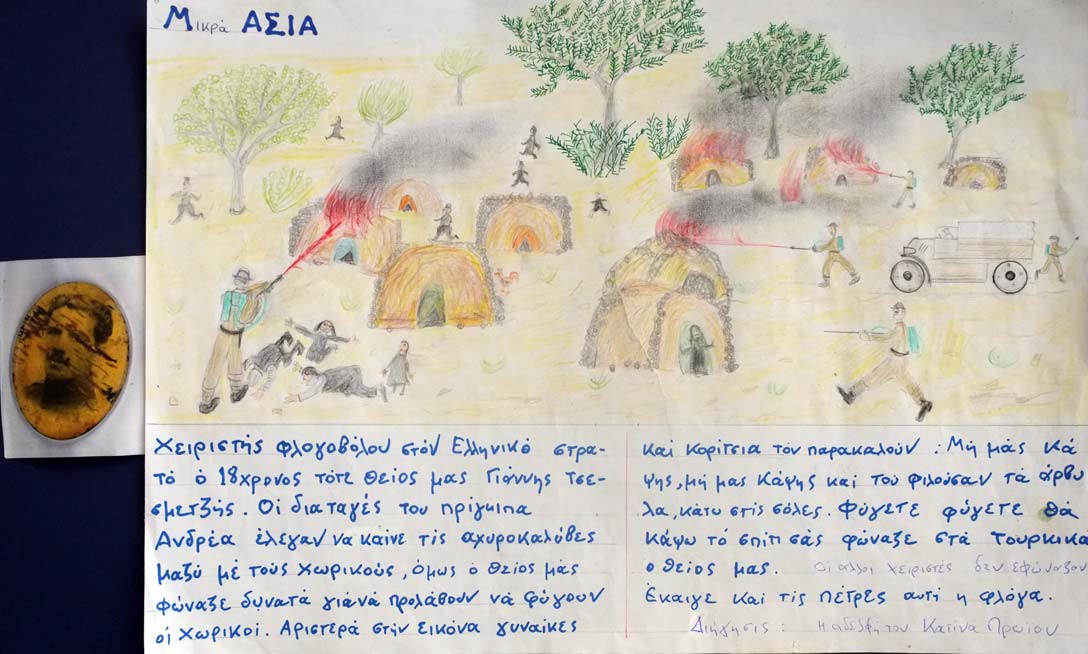 Μικρά ΑΣΙΑ
Χειριστής φλογοβόλου στόν Ελληνικό στρα-
τό ὁ 18χρονος τότε θείος μας Γιάννης Τσε-
σμετζής. Οἱ διαταγές του πρίγκιπα
Ανδρέα έλεγαν να καίνε τίς αχυροκαλύβες
μαζύ μέ τούς χωρικούς, όμως ὁ θείος μάς
φώναξε δυνατά γιάνά προλάβουν νά φύγουν
οἱ χωρικοί. Αριστερά στήν εικόνα γυναίκες
καί κορίτσια τόν παρακαλούν: Μή μάς κά
ψης, μή μας κάψης καί του φιλούσαν τά άρβυ
λα, κάτω στίς σόλες. Φύγετε φύγετε θά
κάψω τό σπίτι σάς φώναξε στά τουρκικα
ο θείος μας. Οι άλλοι χειριστές δεν εφώναξαν
Εκαιγε και τίς πέτρες αυτή η φλόγα.
Διήγησις: Η αδελφή του Κατίνα Πρωίου